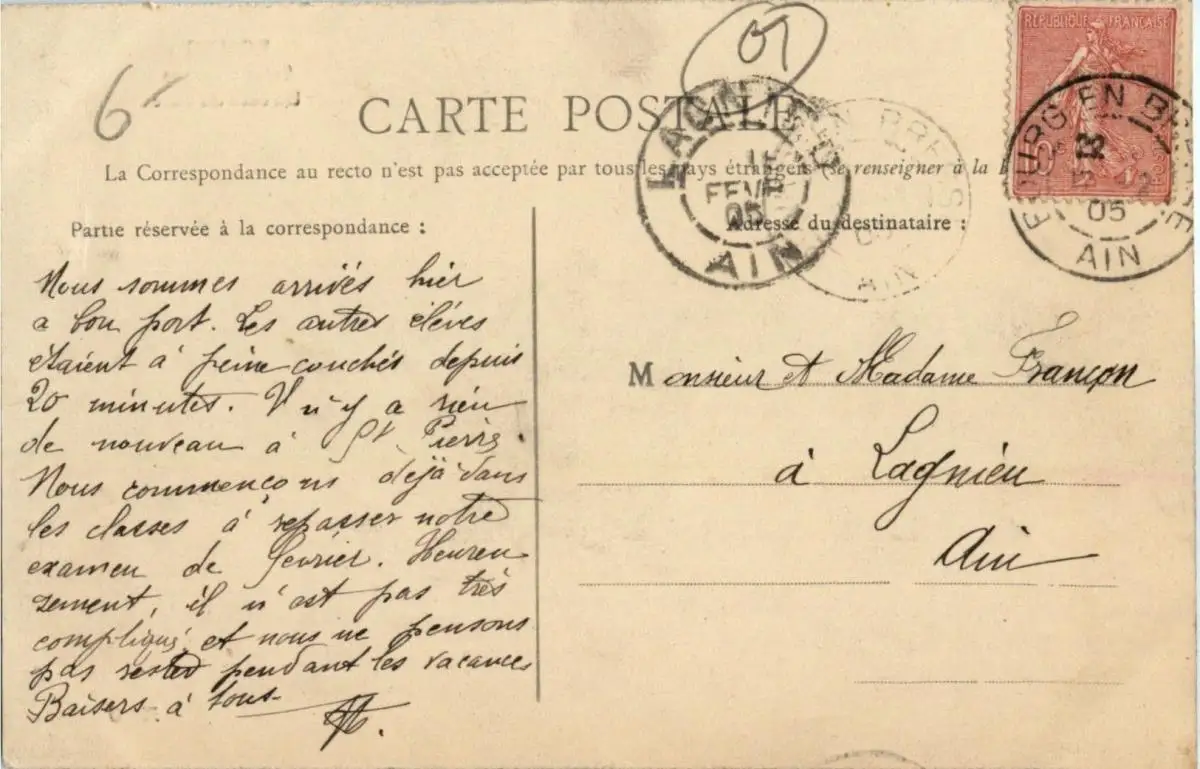 6
07
RÉPUBLIQUE FRANÇAISE
CARTE POSTALE
La Correspondance au recto n'est pas acceptée par tous les pays étrangers (se renseigner à la
LAGNIEU
FEVR
05
AIN
BOURG EN BRESSE
05
AIN
Partie réservée à la correspondance :
Adresse du destinataire :
Nous sommes arrivés hier
a bon port. Les autres élèves
étaient à peine couchés depuis
20 minutes. Il n'y a rien
de nouveau à St Pierre.
Nous commençons déjà dans
les classes à repasser notre
examen de février. Heureu
sement, il n'est pas très
compliqué et nous ne pensons
pas rester pendant les vacances
Baisers à tous
Monsieur et Madame Françon
à Lagnieu
Ain